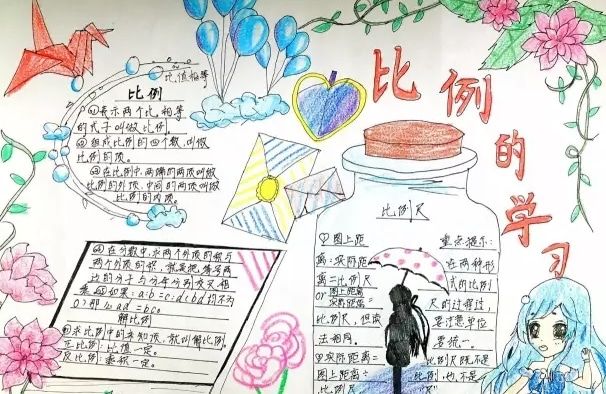 比例的学习
比值相等
比例
①表示两个比相等
的式子叫做比例。
②组成比例的四个数,叫做
比例的项。
③在比例中,两端的两项叫做
比例的外项,中间的两项叫做
比例的内项。
④在分数中,求两个外项的积与
两个内项的积,就是把等号两
比的分子与分母分别交叉相
乘。⑤如果:a:b=c:d(bd均不为
0)那么ad=bc。
解比例
①求比例中的未知项,就叫解比例。
正比例:比值一定。
反比例:乘积一定。
比例尺
①图上距
离:实际距
离=比例尺
or图上距离
实际距离=
比例尺,但
法相同。
②实际距离=
图上距离÷
比例尺
重点提示:
在两种形
式的比例
尺的过程过,
要注意单位
要统一。
比例尺既不是
比例,也不是
"尺"